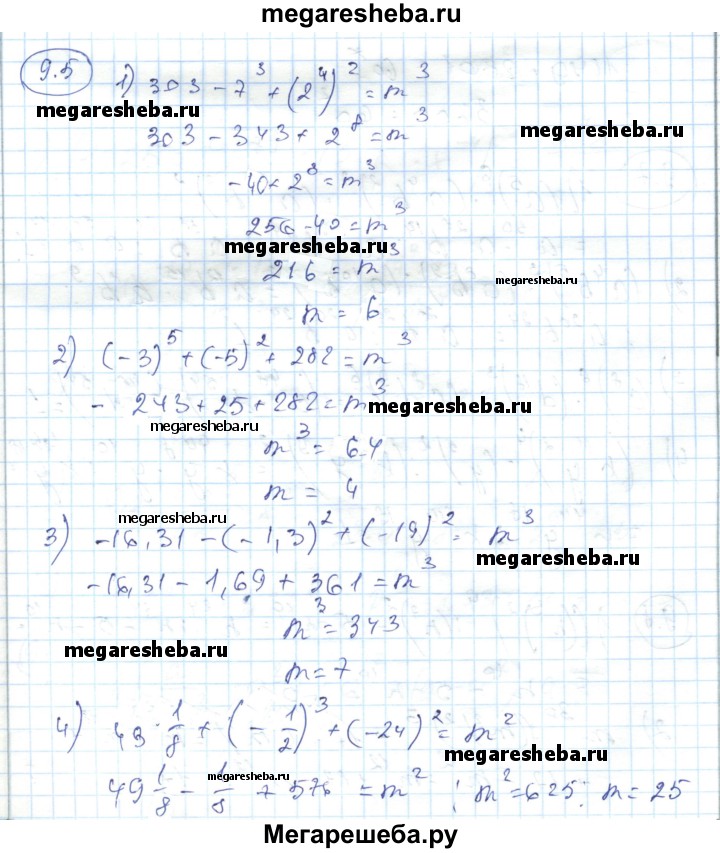 megaresheba.ru
9.5 1) 303 - 7³ + (2⁴)² = m³
megaresheba.ru
303 - 343 + 2⁸ = m³
megaresheba.ru
-40 + 2⁸ = m³
256 - 40 = m³
megaresheba.ru
216 = m³
megaresheba.ru
m = 6
2) (-3)⁵ + (-5)² + 282 = m³
- 243 + 25 + 282 = m³
megaresheba.ru
megaresheba.ru
m³ = 64
m = 4
megaresheba.ru
3) -16,31 - (-1,3)² + (-19)² = m³
megaresheba.ru
-16,31 - 1,69 + 361 = m³
m³ = 343
megaresheba.ru
m = 7
4) 49 1/8 + (-1/2)³ + (-24)² = m²
megaresheba.ru
megaresheba.ru
49 1/8 - 1/8 + 576 = m² ; m² = 625; m = 25
Мегарешеба.ру